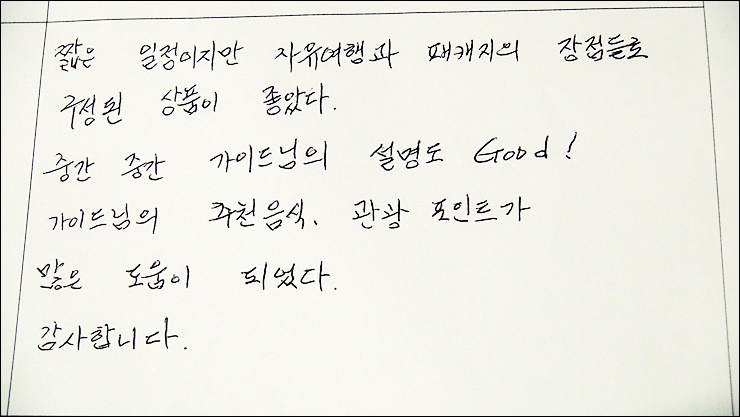 짧은 일정이지만 자유여행과 패캐지의 장점들로
구성된 상품이 좋았다.
중간 중간 가이드님의 설명도 Good!
가이드님의 추천음식, 관광 포인트가
많은 도움이 되었다.
감사합니다.